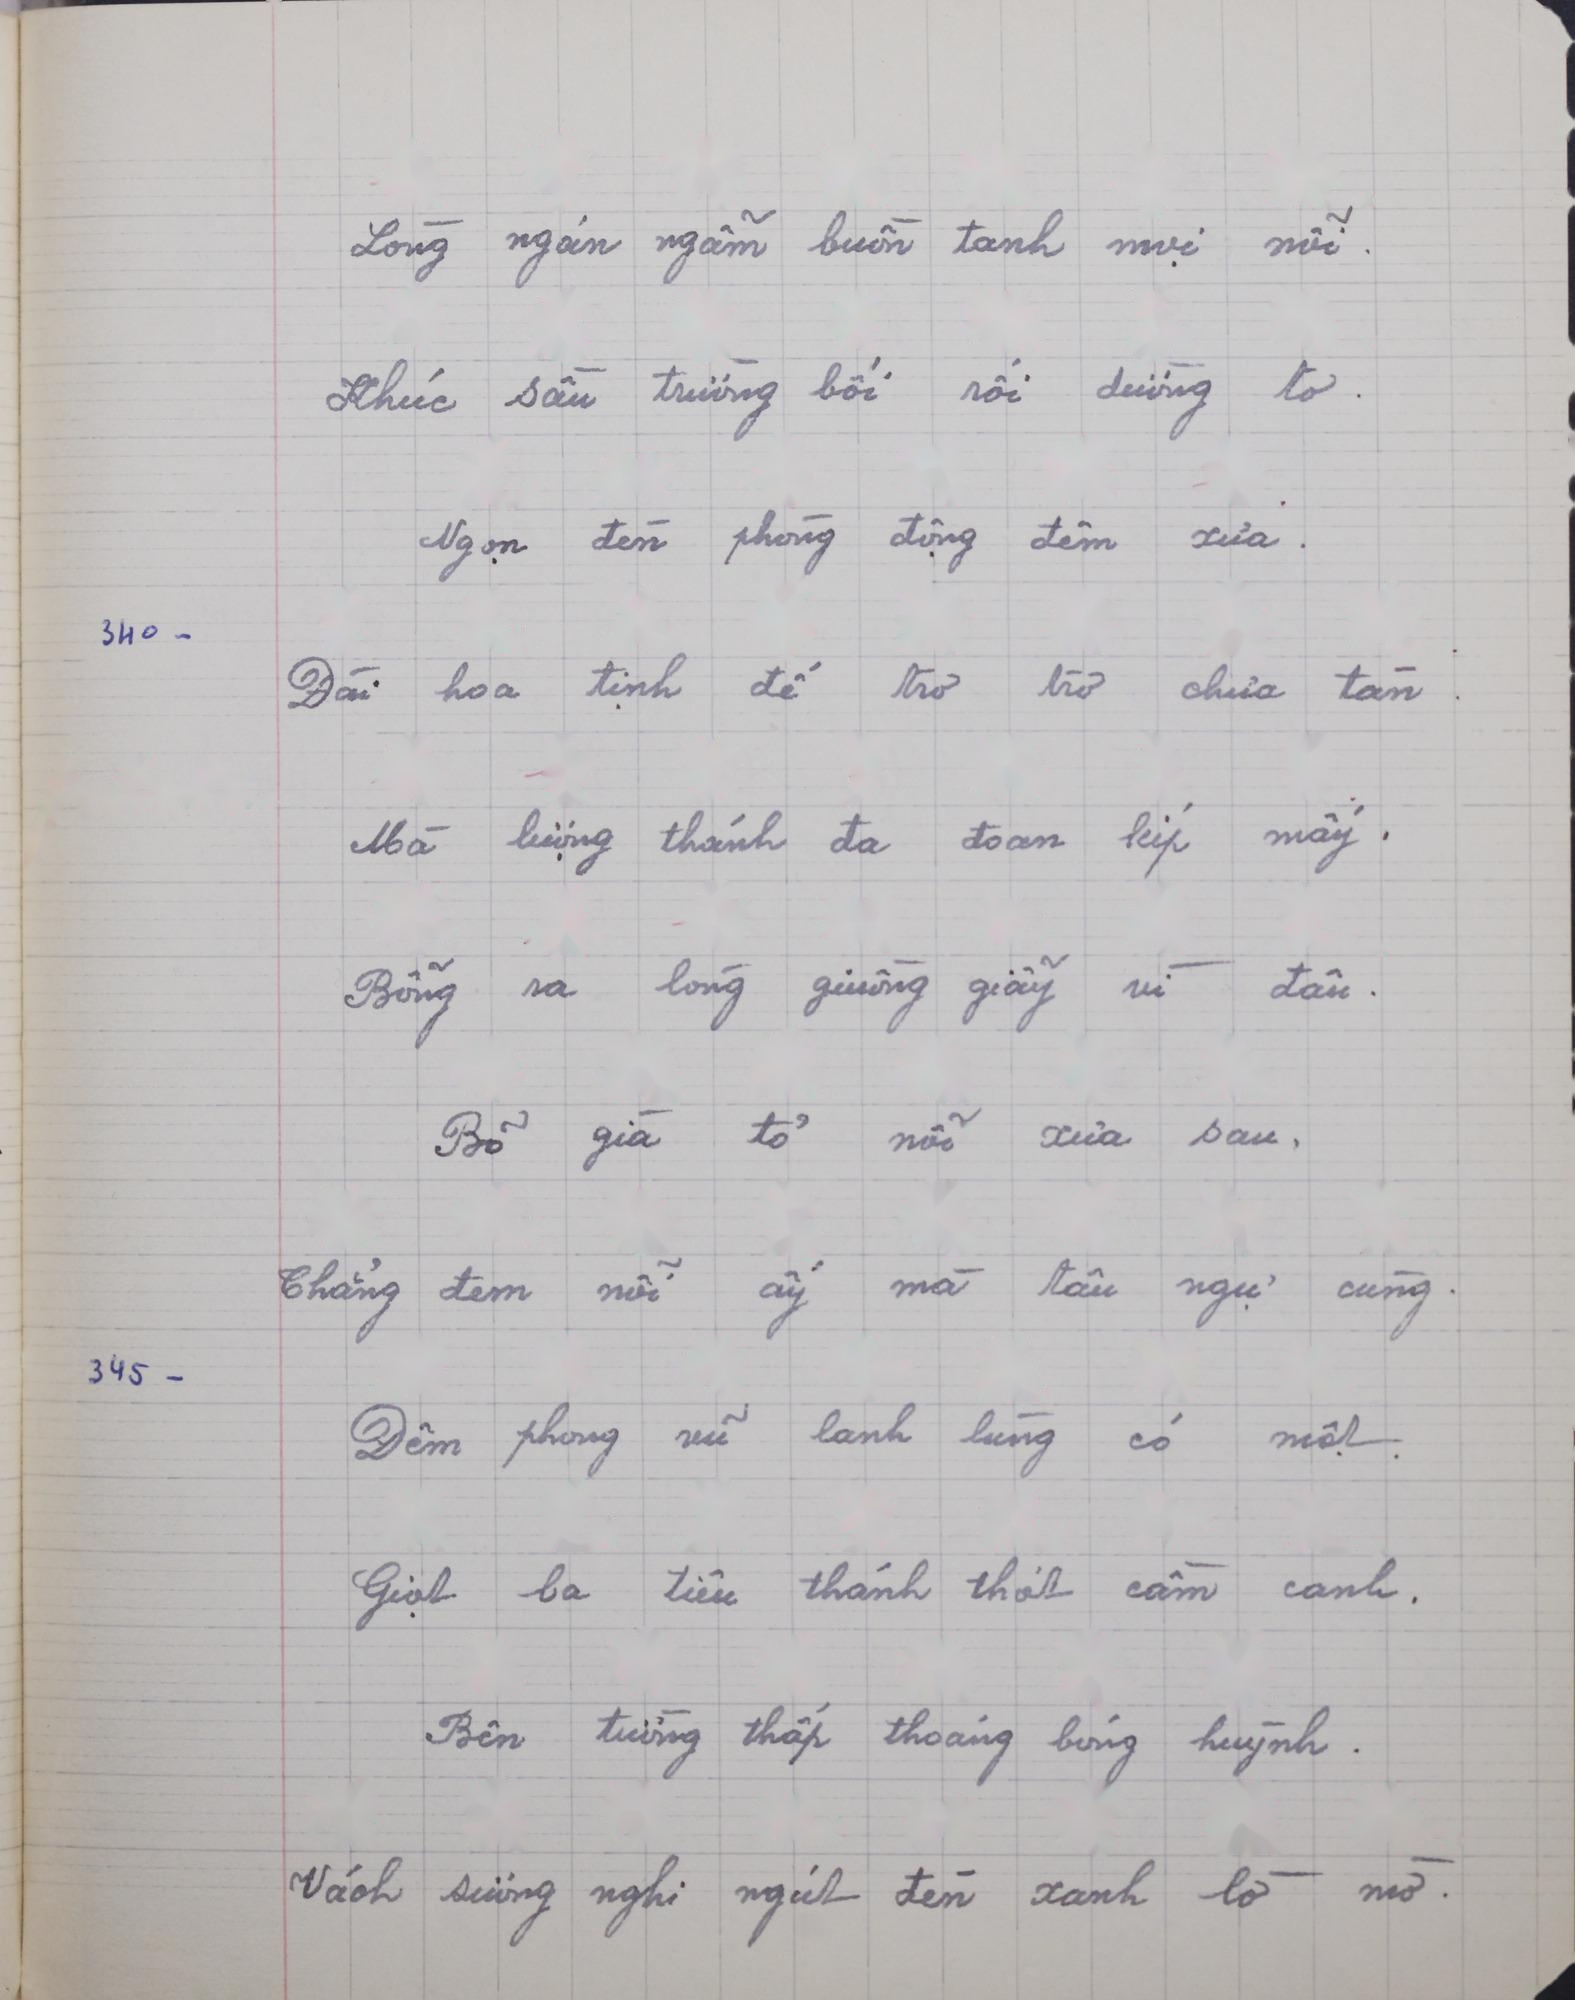 Lòng ngán ngẫm buồn tanh mọi nỗi.
Khúc sầu trường bối rối dường tơ.
Ngọn đèn phòng động đêm xưa.
340 -
Đài hoa tịnh đế trơ trơ chưa tàn.
Mà lượng thánh đa đoan kíp mấy.
Bỗng ra lòng giuồng giẫy vì đâu.
Bõ già tỏ nỗi xưa sau.
Chẳng đem nỗi ấy mà tâu ngự cùng.
345 -
Đêm phong vũ lanh lùng có một.
Giọt ba tiêu thánh thót cầm canh.
Bên tường thấp thoáng bóng huỳnh.
Vách sương nghi ngút đèn xanh lờ mờ.